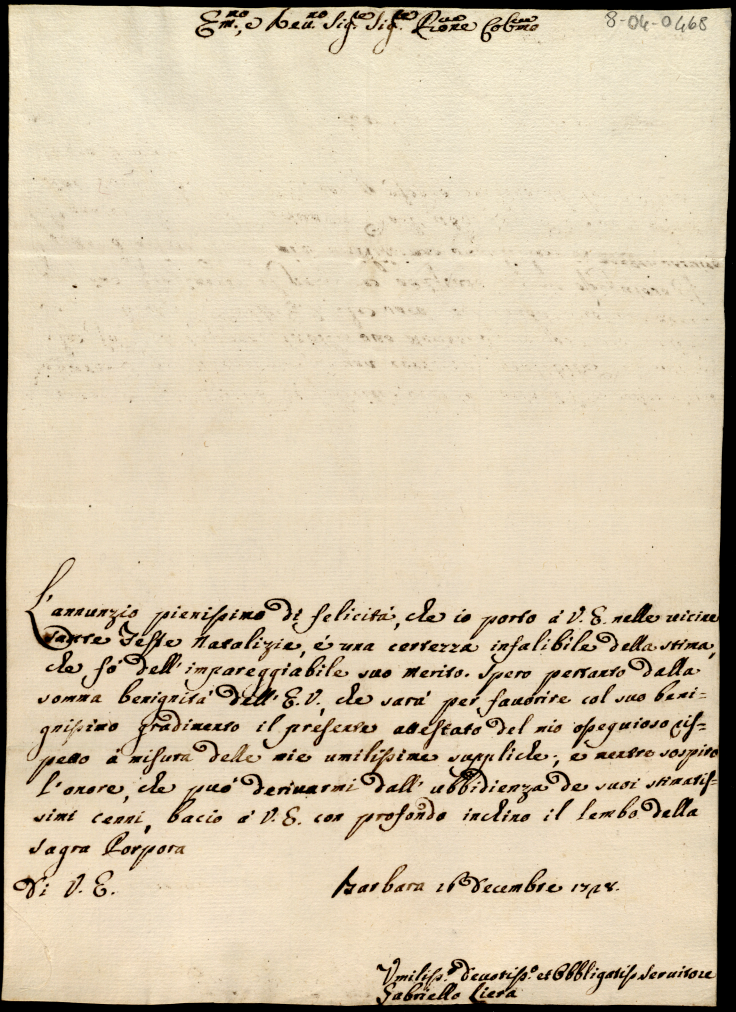 Em.mo, e Reu.mo Sig.re Sig.re Pron̄e Colmo
8-04-0468
L'annunzio pienissimo di felicità, che io porto à V. E. nelle uicine
sante Feste Natalizie, è una certezza infalibile della stima,
che fò dell'impareggiabile suo merito. Spero pertanto dalla
somma benignità dell'E. V., che sarà per fauorire col suo beni-
gnissimo gradimento il presente attestato del mio ossequioso ris-
petto à misura delle mie umilissime suppliche; e mentre sospiro
l'onore, che può deriuarmi dall'ubbidienza de suoi stimatis-
simi cenni, bacio à V. E. con profondo inchino il lembo della
sagra Porpora
Di V. E.
Barbara 16 Decembre
Vmiliss.o Deuotiss.o et Obbligatiss Seruitore
Gabriello Liera